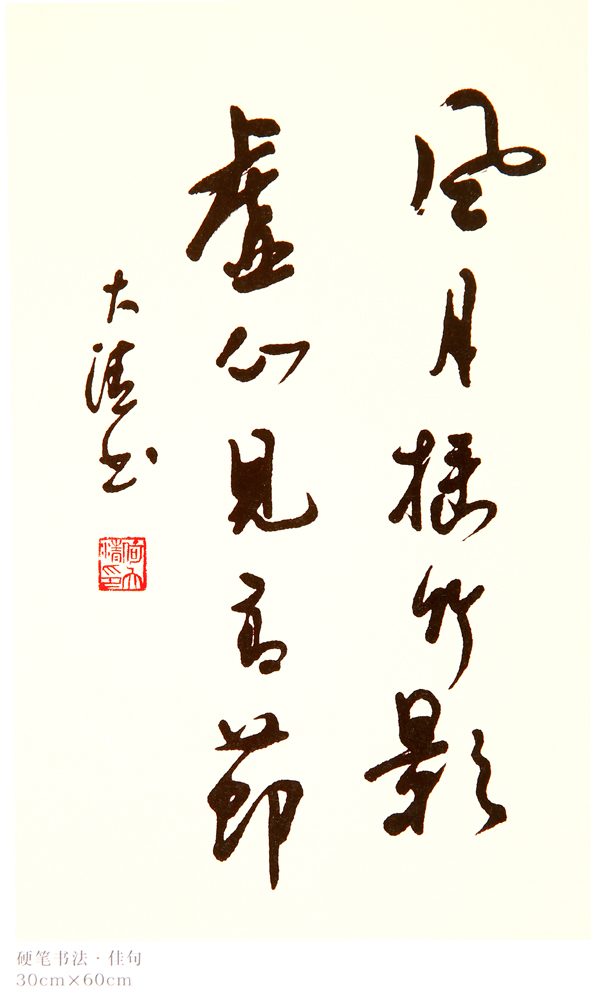 風月摇竹影
虚心見高節
大清书
何大清印
硬笔书法·佳句
30cm×60cm